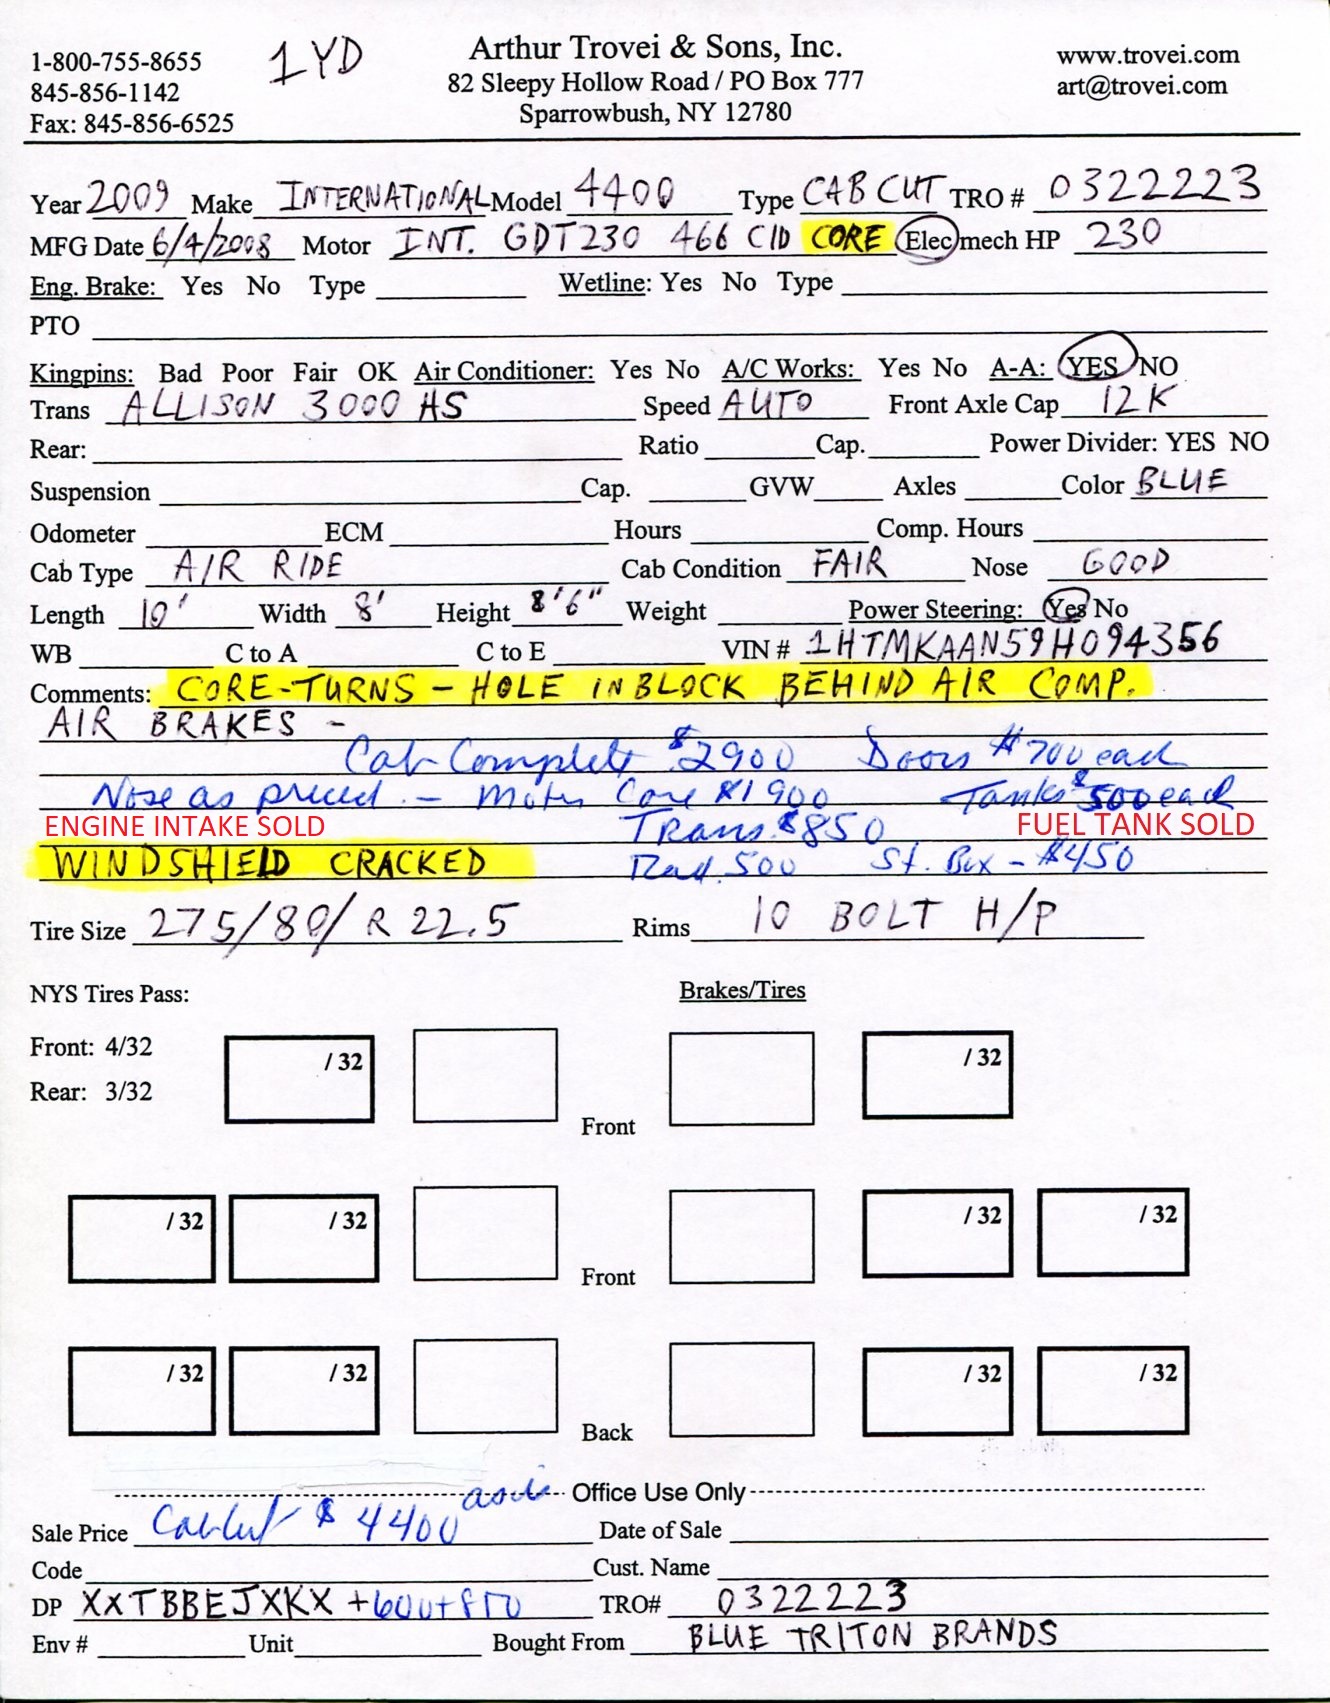 1YD
Arthur Trovei & Sons, Inc.
1-800-755-8655
82 Sleepy Hollow Road / PO Box 777
www.trovei.com
845-856-1142
Sparrowbush, NY 12780
art@trovei.com
Fax: 845-856-6525
Year 2009 Make INTERNATIONAL Model 4400 Type CAB CUT TRO # 0322223
MFG Date 6/4/2008 Motor INT. GDT230 466 CID CORE Elec mech HP 230
Eng. Brake: Yes No Type Wetline: Yes No Type
PTO
Kingpins: Bad Poor Fair OK Air Conditioner: Yes No A/C Works: Yes No A-A: YES NO
Trans ALLISON 3000 HS Speed AUTO Front Axle Cap 12K
Rear: Ratio Cap. Power Divider: YES NO
Suspension Cap. GVW Axles Color BLUE
Odometer ECM Hours Comp. Hours
Cab Type AIR RIDE Cab Condition FAIR Nose GOOD
Length 10' Width 8' Height 8'6" Weight Power Steering: Yes No
WB C to A C to E VIN # 1HTMKAAN59H094356
Comments: CORE-TURNS - HOLE IN BLOCK BEHIND AIR COMP.
AIR BRAKES -
Cab Complete $2900 Doors #700 each
Nose as priced - Motor Core $1900 Tanks $500 each
ENGINE INTAKE SOLD Trans. $850 FUEL TANK SOLD
WINDSHIELD CRACKED Rad. 500 St. Box - $450
Tire Size 275/80/R 22.5 Rims 10 BOLT H/P
NYS Tires Pass: Brakes/Tires
Front: 4/32 / 32 / 32
Rear: 3/32
Front
/ 32 / 32 / 32 / 32
Front
/ 32 / 32 / 32 / 32
Back
Office Use Only
Sale Price Cab Cut $ 4400 as is Date of Sale
Code Cust. Name
DP XXTBBEJXKX TRO# 0322223
Env # Unit Bought From BLUE TRITON BRANDS